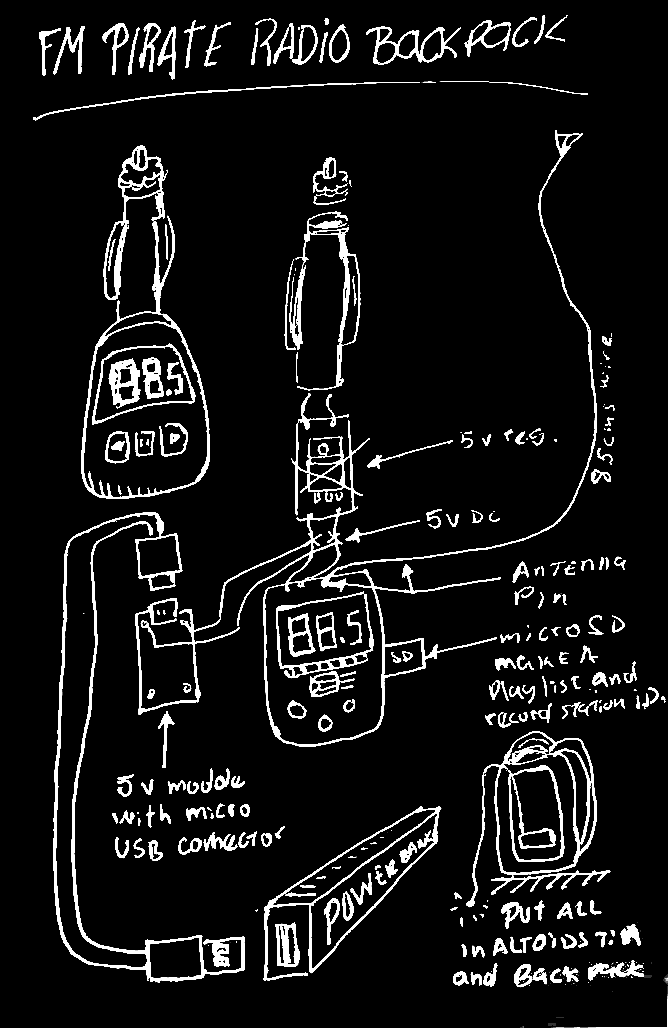 FM PIRATE RADIO BACKPACK
88.5
5V reg.
5V DC
85cms wire
ANTENNA
PIN
88.5
SD
microSD
make A
Playlist and
record station I.D.
5V module
with micro
USB connector
POWER BANK
PUT ALL
in ALTOIDS TIN
and BackPack